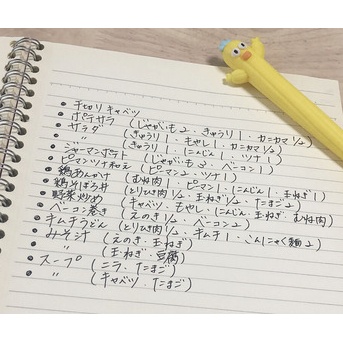 • 千切りキャベツ
• ポテサラ (じゃがいも2、きゅうり1、カニカマ1/2)
• サラダ (きゅうり1、もやし1、カニカマ1/2)
• 〃 (きゅうり1、にんじん1、ツナ1)
• ジャーマンポテト (じゃがいも3、ベーコン1)
• ピーマンツナ和え (ピーマン2、ツナ1)
• 鶏あんかけ (むね肉1、ピーマン1、にんじん1、玉ねぎ1)
• 鶏そぼろ丼 (とりひき肉1/2、玉ねぎ1/2、たまご2)
• 野菜炒め (キャベツ、もやし、にんじん、玉ねぎ、むね肉)
• ベーコン巻き (えのき1/2、ベーコン2)
• キムチうどん (とりひき肉1/2、キムチ1、こんにゃく麺2)
• みそ汁 (えのき・玉ねぎ)
• 〃 (玉ねぎ・豆腐)
• スープ (ニラ・たまご)
• 〃 (キャベツ・たまご)